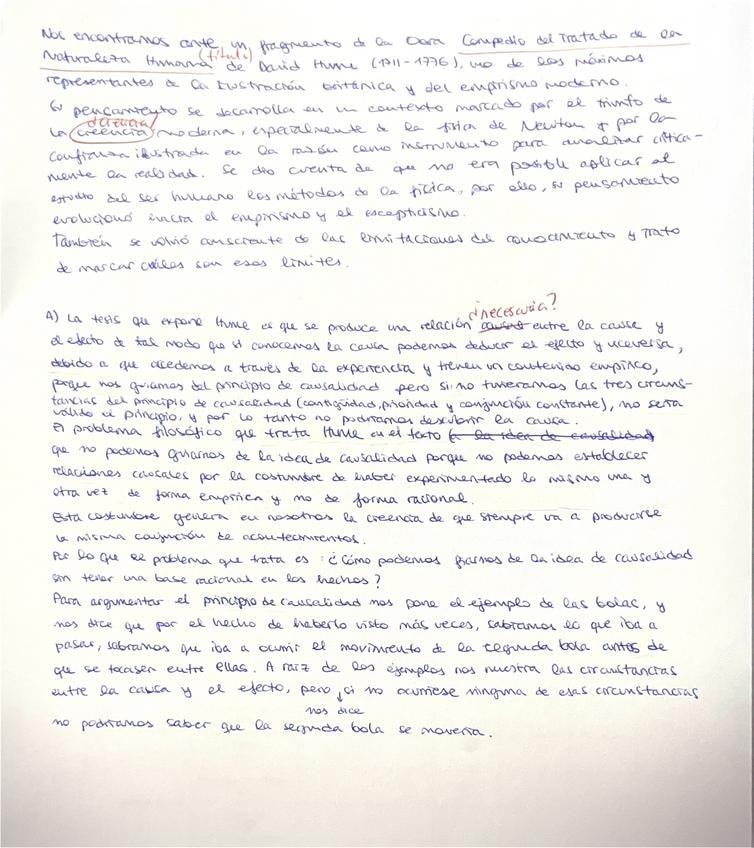 Nos encontramos ante un fragmento de la obra Compedio del Tratado de la
(título)
Naturaleza Humana de David Hume (1711-1776), uno de los máximos
representantes de la Ilustración británica y del empirismo moderno.
Su pensamiento se desarrolla en un contexto marcado por el triunfo de
¿ciencia?
la creencia moderna, especialmente de la física de Newton y por la
confianza ilustrada en la razón como instrumento para analizar crítica-
mente la realidad. Se dio cuenta de que no era posible aplicar al
estudio del ser humano los métodos de la física, por ello, su pensamiento
evolucionó hacia el empirismo y el escepticismo.
También se volvió consciente de las limitaciones del conocimiento y trato
de marcar cuáles son esos límites.
¿necesaria?
A) La tesis que expone Hume es que se produce una relación causal entre la causa y
el efecto de tal modo que si conocemos la causa podemos deducir el efecto y viceversa,
debido a que accedemos a través de la experiencia y tienen un contenido empírico,
porque nos guiamos del principio de causalidad pero si no tuvieramos las tres circuns-
tancias del principio de causalidad (contigüidad, prioridad y conjunción constante), no sería
válido el principio, y por lo tanto no podríamos descubrir la causa.
El problema filosófico que trata Hume en el texto es la idea de causalidad
que no podemos guiarnos de la idea de causalidad porque no podemos establecer
relaciones causales por la costumbre de haber experimentado lo mismo una y
otra vez de forma empírica y no de forma racional.
Esta costumbre genera en nosotros la creencia de que siempre va a producirse
la misma conjunción de acontecimientos.
Por lo que el problema que trata es: ¿Cómo podemos fiarnos de la idea de causalidad
sin tener una base racional en los hechos?
Para argumentar el principio de causalidad nos pone el ejemplo de las bolas, y
nos dice que por el hecho de haberlo visto más veces, sabíamos lo que iba a
pasar, sabíamos que iba a ocurrir el movimiento de la segunda bola antes de
que se tocasen entre ellas. A raíz de los ejemplos nos muestra las circunstancias
entre la causa y el efecto, pero si no ocurriese ninguna de esas circunstancias
nos dice
no podríamos saber que la segunda bola se movería.